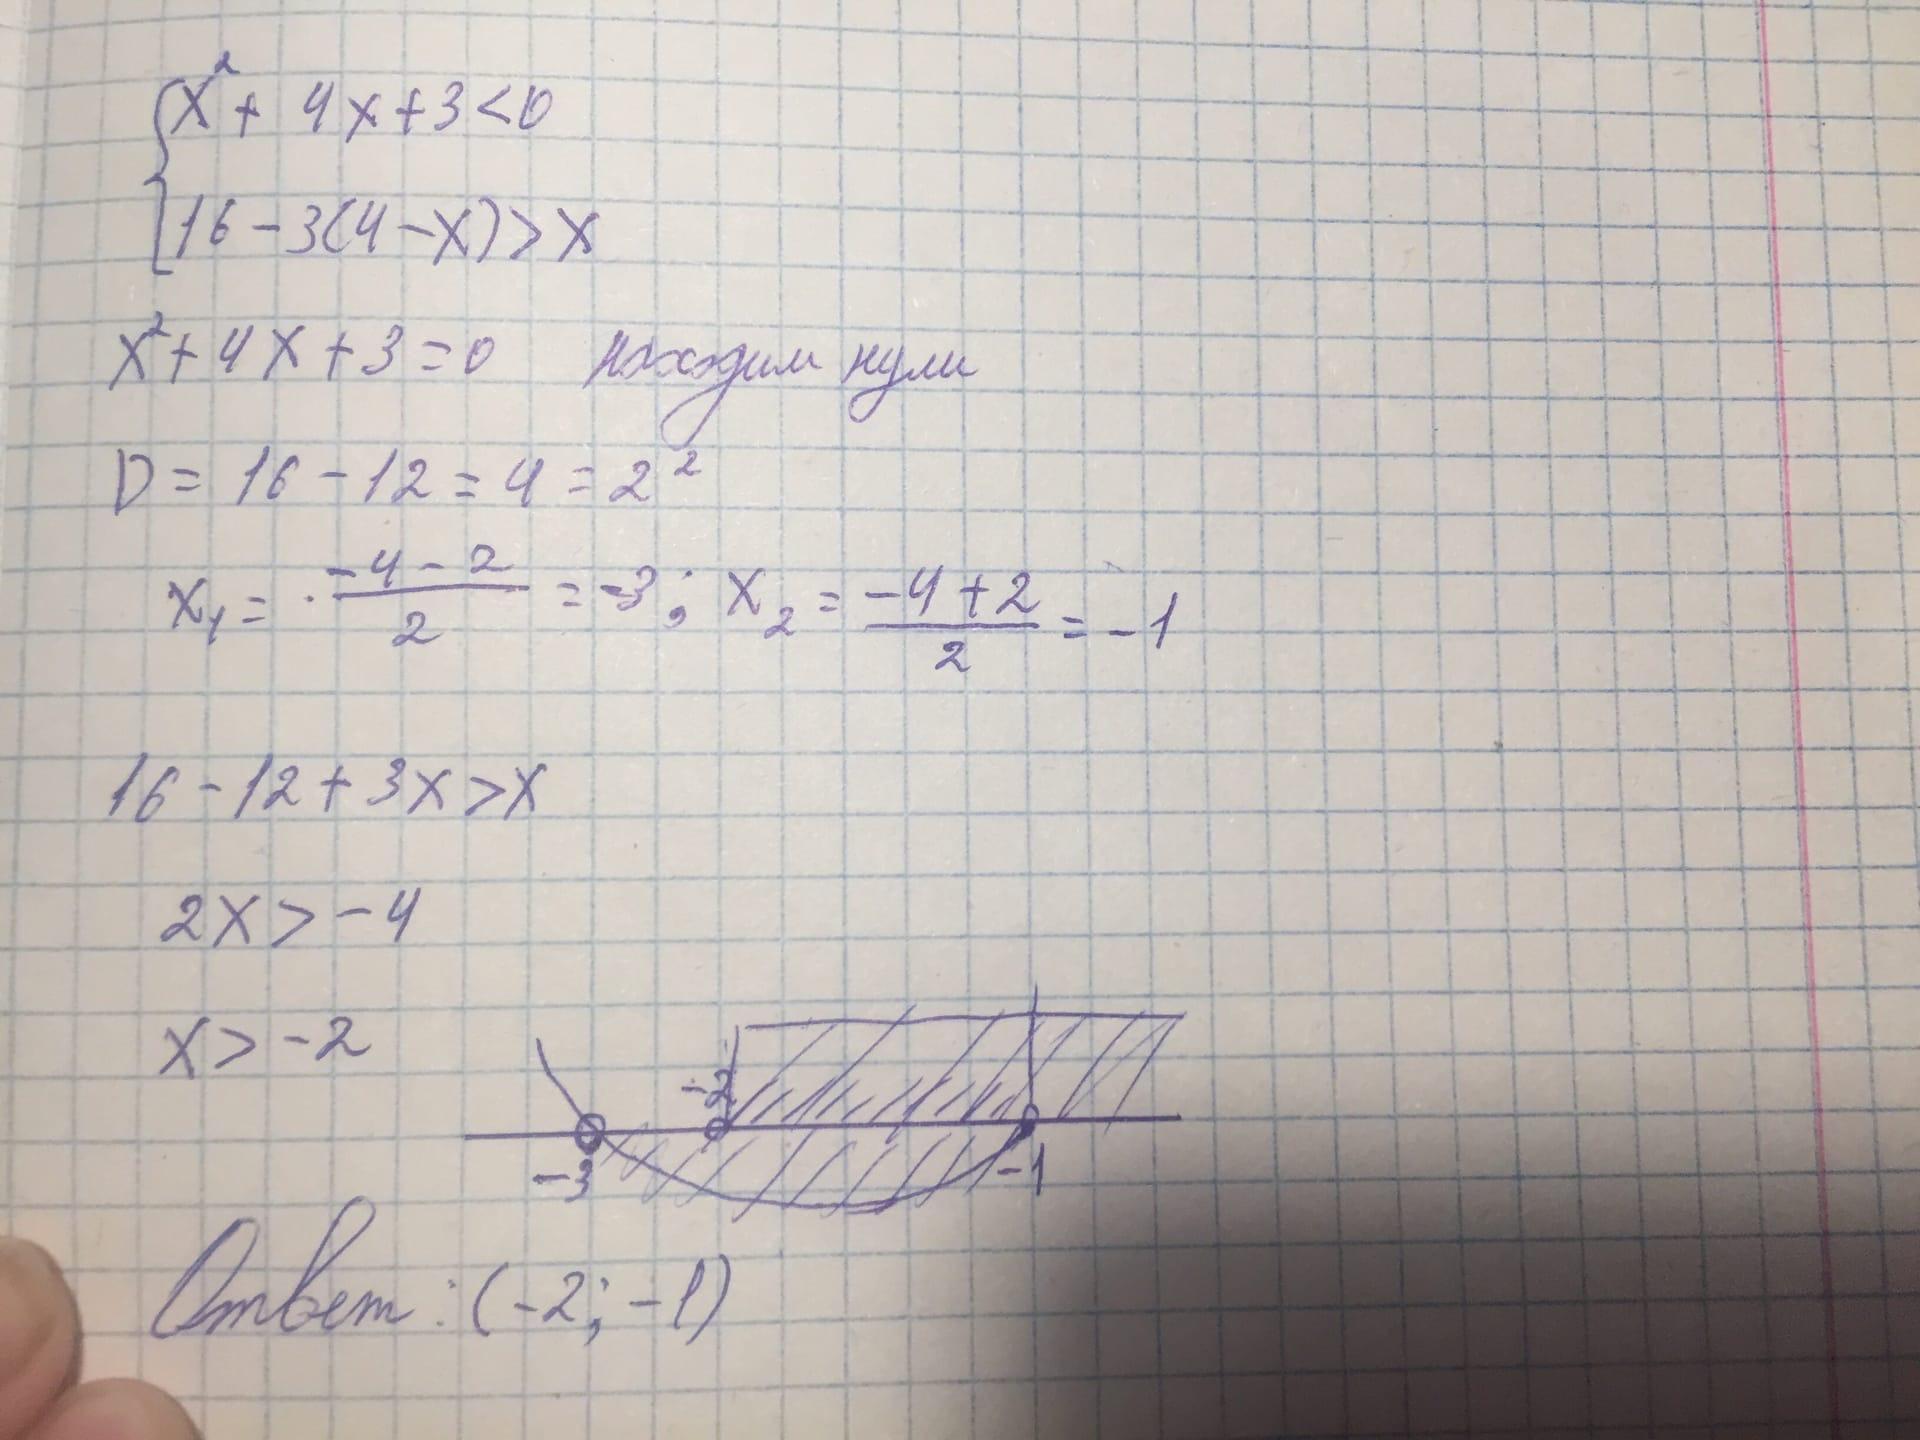 {x² + 4x + 3 < 0
16 - 3(4 - x) > x
x² + 4x + 3 = 0 находим нули
D = 16 - 12 = 4 = 2²
x₁ = (-4 - 2)/2 = -3; x₂ = (-4 + 2)/2 = -1
16 - 12 + 3x > x
2x > -4
x > -2
-2
-3 -1
Ответ: (-2; -1)